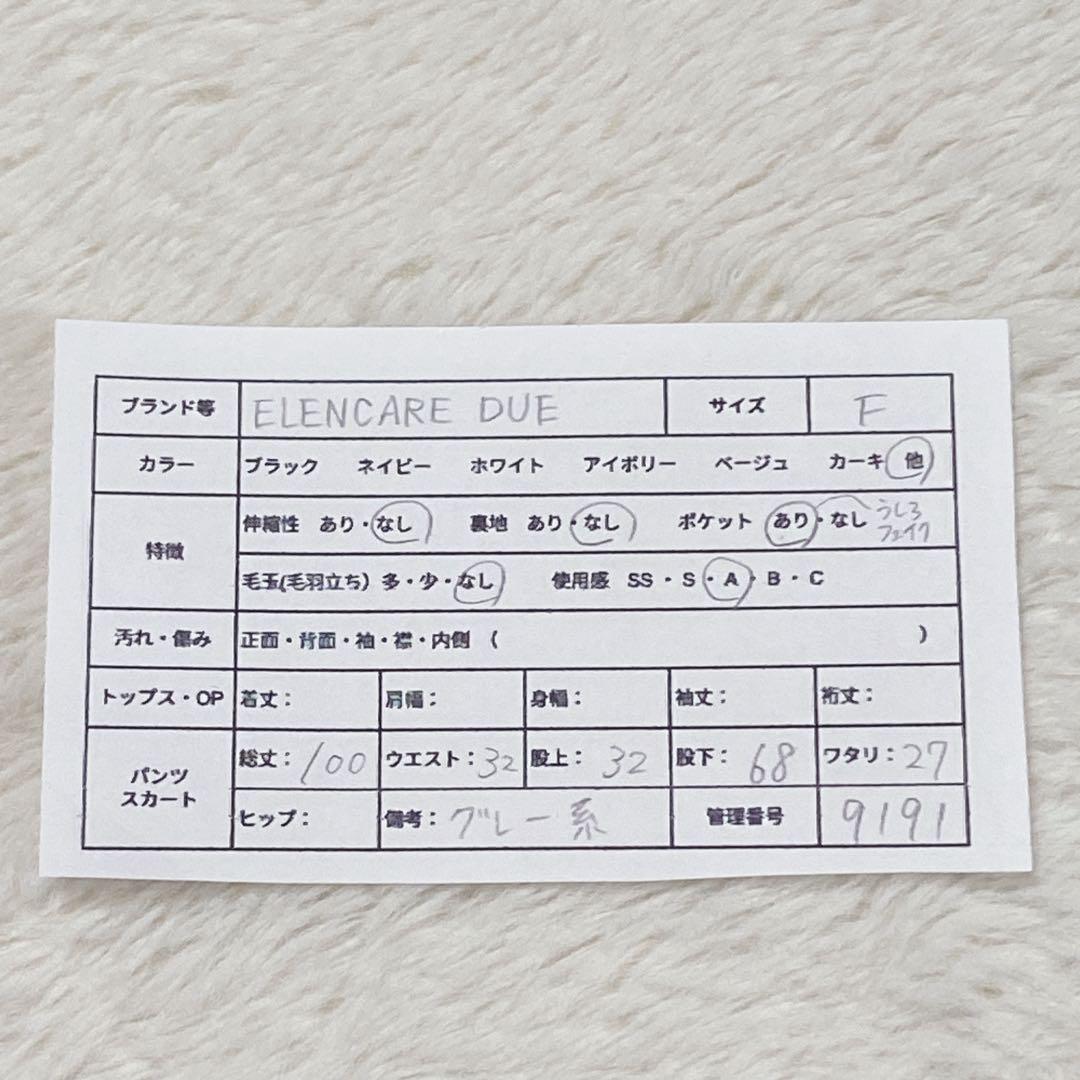 ブランド等 ELENCARE DUE サイズ F
カラー ブラック ネイビー ホワイト アイボリー ベージュ カーキ 他
特徴
伸縮性 あり・なし 裏地 あり・なし ポケット あり・なし うしろ
フェイク
毛玉(毛羽立ち) 多・少・なし 使用感 SS・S・A・B・C
汚れ・傷み 正面・背面・袖・襟・内側 ( )
トップス・OP 着丈： 肩幅： 身幅： 袖丈： 裄丈：
パンツ
スカート
総丈：100 ウエスト：32 股上：32 股下：68 ワタリ：27
ヒップ： 備考：グレー系 管理番号 9191